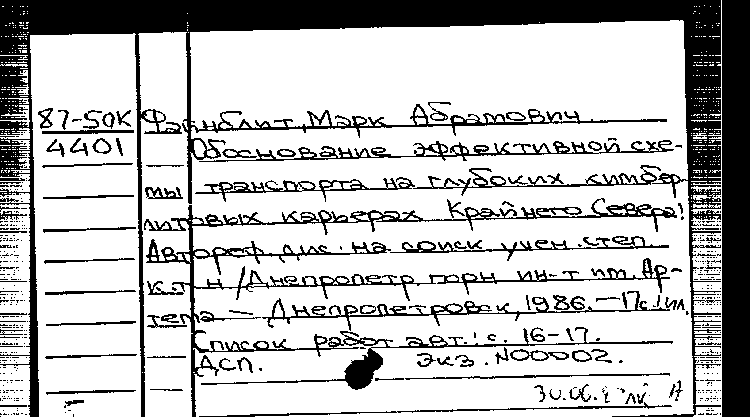 87-50К Файнблит, Марк Абрамович.
4401 Обоснование эффективной схе-
мы транспорта на глубоких кимбер-
литовых карьерах Крайнего Севера:
Автореф. дис. на соиск. учен. степ.
к.т.н /Днепропетр. горн. ин-т им. Ар-
тема — Днепропетровск, 1986. — 17с.: ил.
Список работ авт.: с. 16-17.
ДСП. Экз. N00002.
30.06.